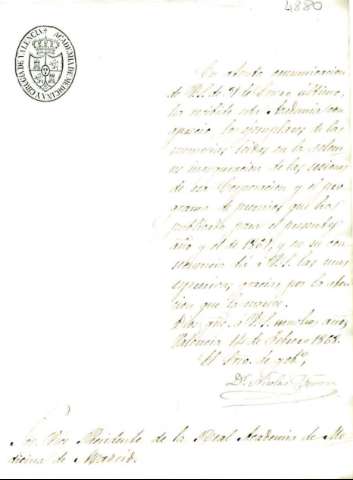 4880
ACADEMIA DE MEDICINA Y CIRUGIA DE VALENCIA
En atenta comunicacion
de V.S. de 31 de Enero último,
ha recibido esta Academia con
aprecio los ejemplares de las
memorias leidas en la solem
ne inauguracion de las sesiones
de esa Corporacion y el pro
grama de premios que ha
publicado para el presente
año y el de 1869, y en su con
secuencia dá á V.S. las mas
espresivas gracias por la aten
cion que la merece.
Dios gũe á V.S. muchos años.
Valencia 14 de Febrero 1868.
El Srio. de gobº,
Dr. Nicolás
Sor. Vice Presidente de la Real Academia de Me
dicina de Madrid.